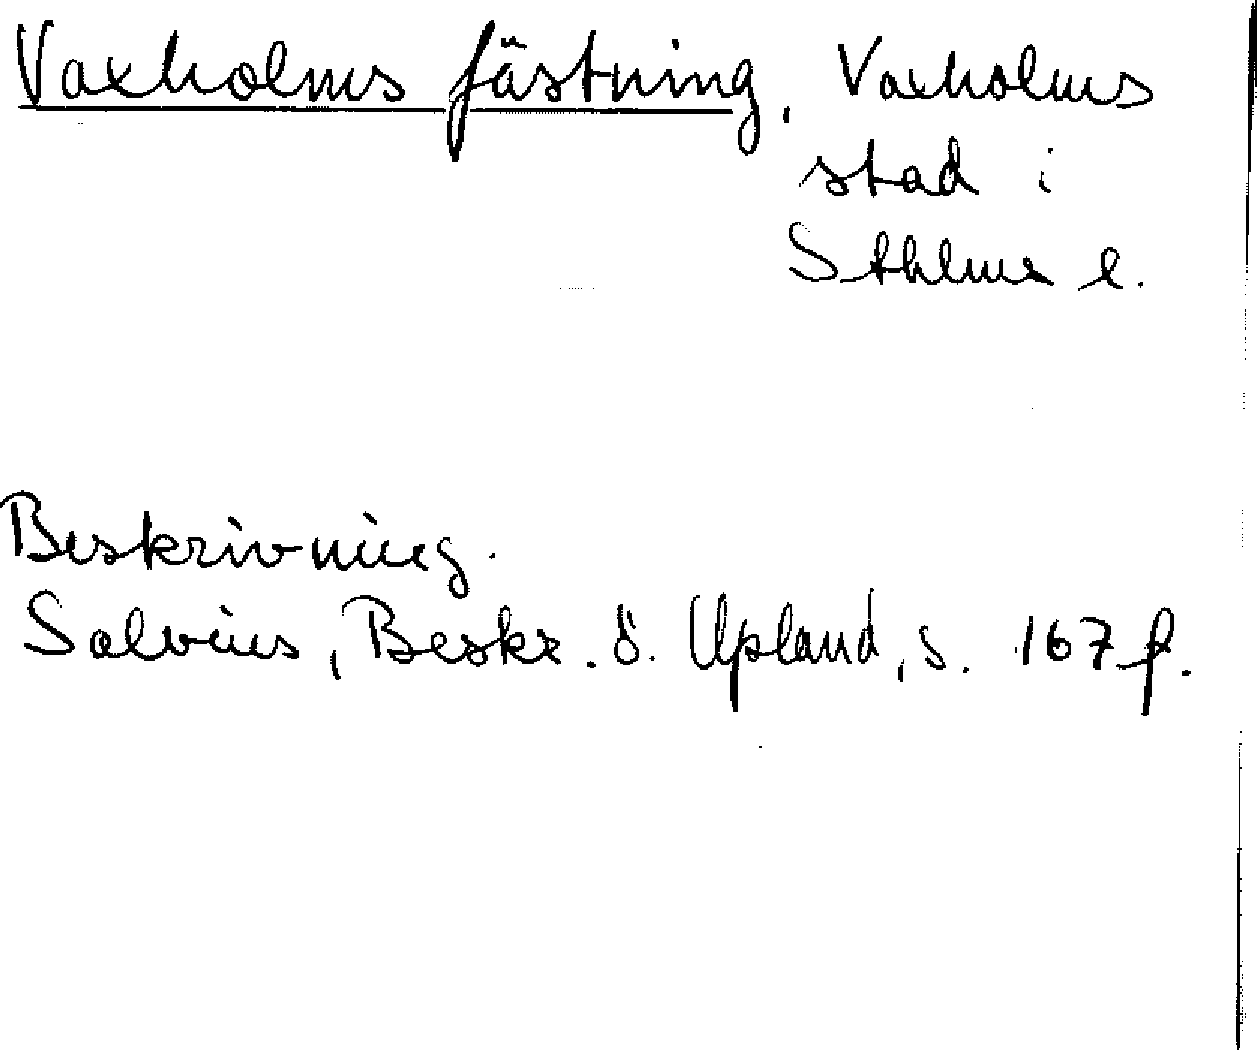 Vaxholms fästning, Vaxholms
stad i
Sthlms l.
Beskrivning.
Salvius, Beskr. ö. Upland, s. 167 f.